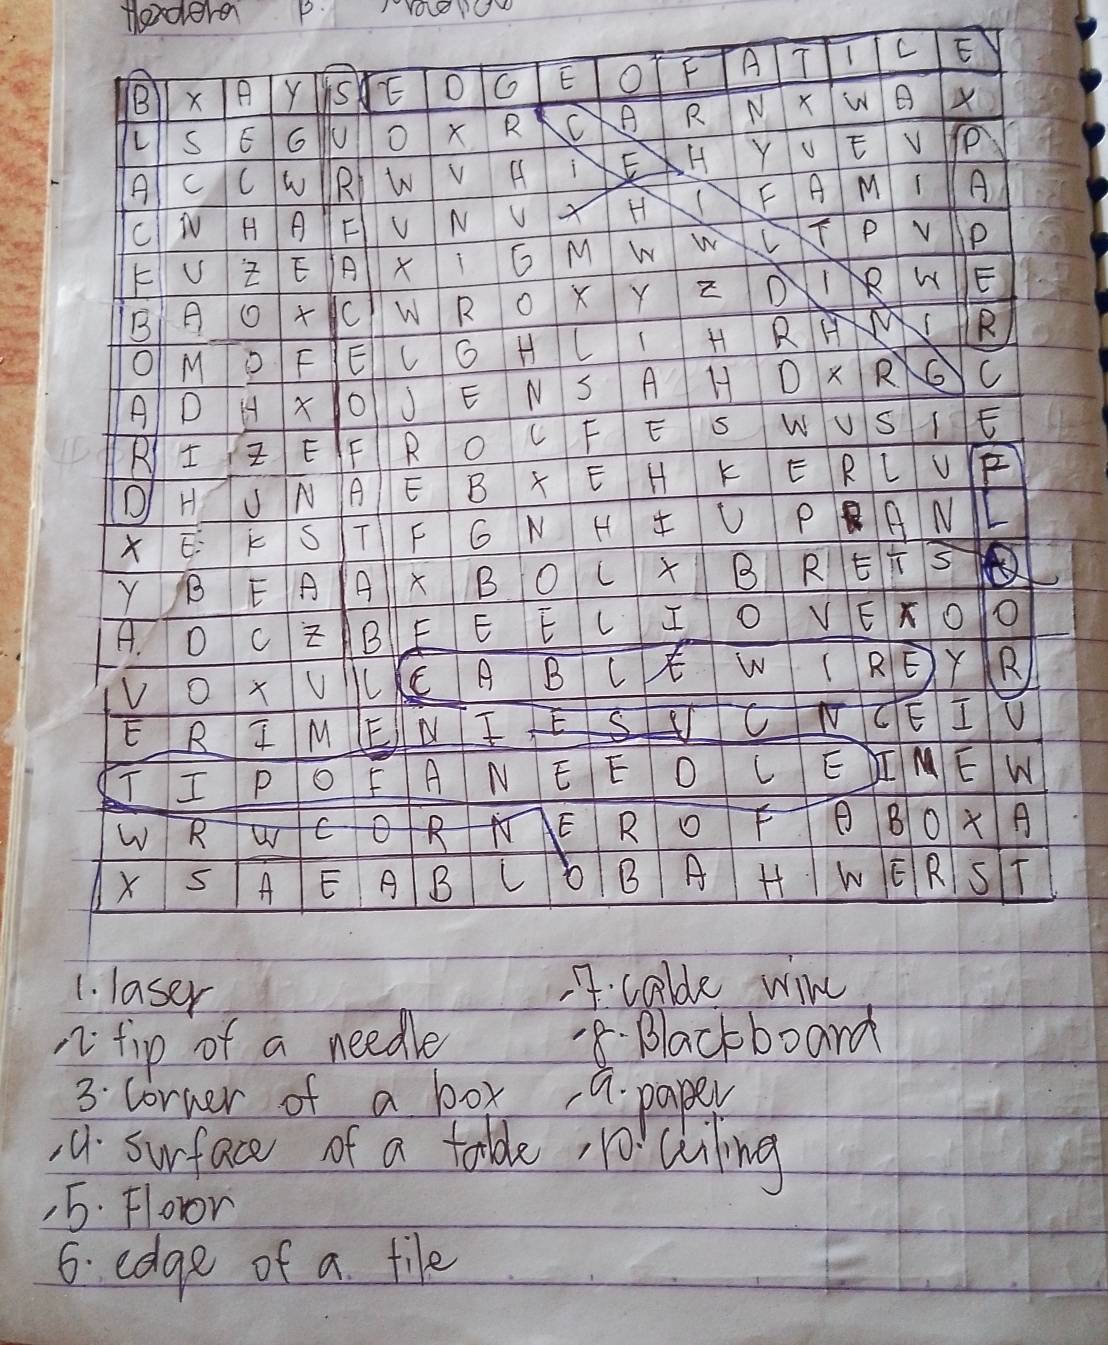 B X A Y S E D G E O F A T I L E
L S E G U O X R C A R N X W A X
A C C W R W V H I E H Y U E V P
C N H A F U N V X H I F A M I A
K U Z E A X I G M W W L T P V P
B A O X C W R O X Y Z D I R W E
O M D F E L G H L I H R H N I R
A D H X O J E N S A H D X R G C
R I Z E F R O L F E S W U S I E
D H U N A E B X E H K E R L U F
X E K S T F G N H I U P R A N L
Y B E A A X B O L X B R E T S O
A O C Z B F E E L I O V E X O O
V O X V L C A B L E W I R E Y R
E R I M E N I E S U C N C E I U
T I P O F A N E E D L E I M E W
W R W C O R N E R O F A B O X A
X S A E A B L O B A H W E R S T
1. laser
2. tip of a needle
3. Corner of a box
4. surface of a table
5. Floor
6. edge of a tile
7. cable wire
8. Blackboard
9. paper
10. ceiling